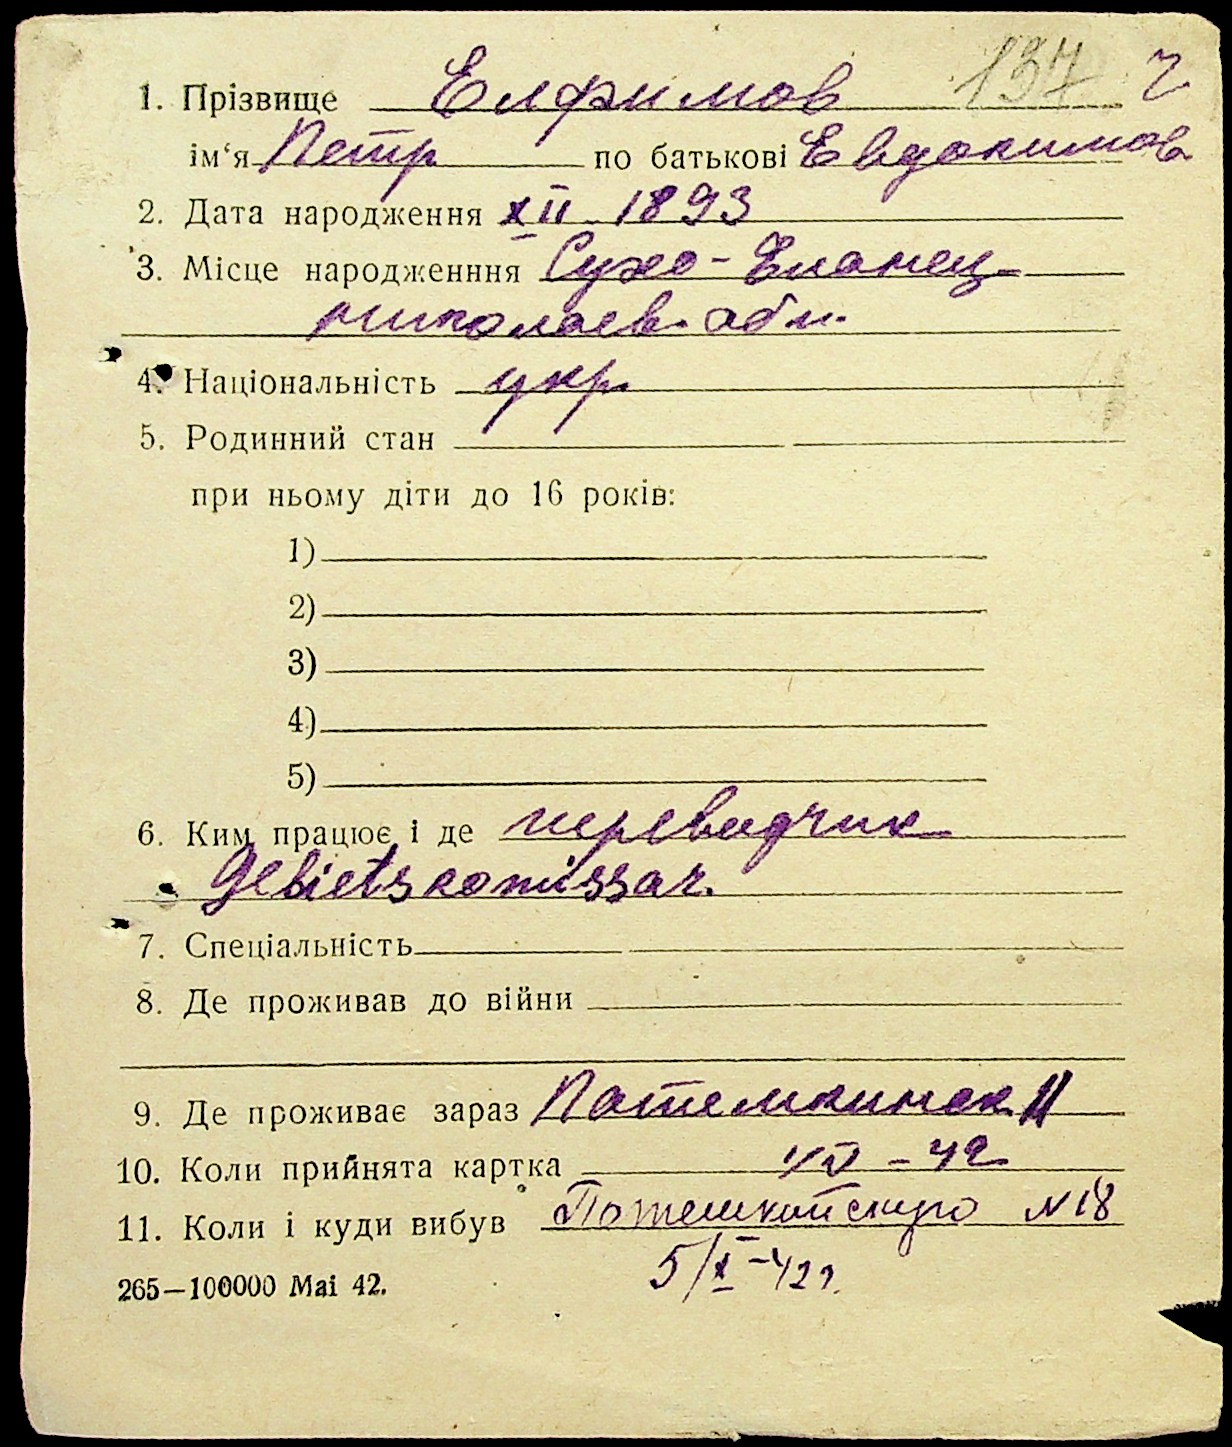 137 ч
1. Прізвище Елфимов
ім‘я Петр по батькові Евдокимов
2. Дата народження XII 1893
3. Місце народженння Сухо-Еланец
николаев. обл.
4. Національність укр.
5. Родинний стан
при ньому діти до 16 років:
1)
2)
3)
4)
5)
6. Ким працює і де переводчик
Gebietskomissar.
7. Спеціальність
8. Де проживав до війни
9. Де проживає зараз Потемкинск 11
10. Коли прийнята картка VII - 42
11. Коли і куди вибув N 18
5/X-42г.
265—100000 Mai 42.